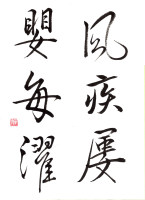 風疾屡
嬰每濯